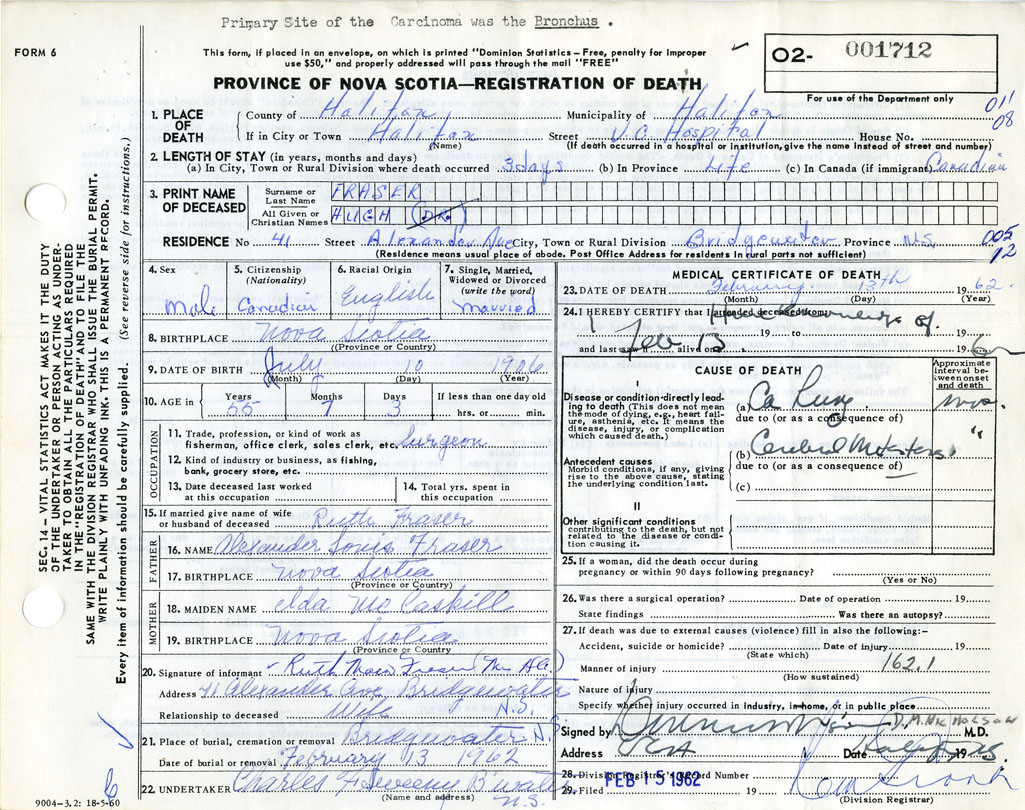 Primary Site of the Carcinoma was the Bronchus .
FORM 6
This form, if placed in an envelope, on which is printed "Dominion Statistics – Free, penalty for improper
use $50," and properly addressed will pass through the mail "FREE"
O2- 001712
For use of the Department only
PROVINCE OF NOVA SCOTIA—REGISTRATION OF DEATH
011
08
1. PLACE OF DEATH
County of Halifax Municipality of Halifax
If in City or Town Halifax Street V.G. Hospital House No.
(Name) (If death occurred in a hospital or institution, give the name instead of street and number)
2. LENGTH OF STAY (in years, months and days)
(a) In City, Town or Rural Division where death occurred 3 days (b) In Province Life (c) In Canada (if immigrant) Canadian
3. PRINT NAME OF DECEASED
Surname or Last Name FRASER
All Given or Christian Names HUGH (DR)
RESIDENCE No 41 Street Alexander Ave City, Town or Rural Division Bridgewater Province N.S.
005
12
(Residence means usual place of abode. Post Office Address for residents in rural parts not sufficient)
4. Sex Male
5. Citizenship (Nationality) Canadian
6. Racial Origin English
7. Single, Married, Widowed or Divorced (write the word) Married
8. BIRTHPLACE Nova Scotia
(Province or Country)
9. DATE OF BIRTH July 10 1906
(Month) (Day) (Year)
10. AGE in Years 55 Months 7 Days 3 If less than one day old hrs. or min.
OCCUPATION
11. Trade, profession, or kind of work as fisherman, office clerk, sales clerk, etc. Surgeon
12. Kind of industry or business, as fishing, bank, grocery store, etc.
13. Date deceased last worked at this occupation
14. Total yrs. spent in this occupation
15. If married give name of wife or husband of deceased Ruth Fraser
FATHER
16. NAME Alexander Louis Fraser
17. BIRTHPLACE Nova Scotia
(Province or Country)
MOTHER
18. MAIDEN NAME Ada McCaskill
19. BIRTHPLACE Nova Scotia
(Province or Country)
20. Signature of informant Ruth Fraser
Address 41 Alexander Ave Bridgewater
N.S.
Relationship to deceased Wife
21. Place of burial, cremation or removal Bridgewater N.S.
Date of burial or removal February 13 1962
22. UNDERTAKER Charles
(Name and address)
N.S.
9004–3.2: 18-5-60
6
MEDICAL CERTIFICATE OF DEATH
23. DATE OF DEATH February 13th 1962
(Month) (Day) (Year)
24. I HEREBY CERTIFY that I attended deceased from
Feb 13 19 to 19
and last saw h alive on 1962
CAUSE OF DEATH
Approximate interval between onset and death
I
Disease or condition directly leading to death (This does not mean the mode of dying, e.g., heart failure, asthenia, etc. It means the disease, injury, or complication which caused death.)
(a) Ca Lung mos.
due to (or as a consequence of)
(b) Cerebral Metastasis "
Antecedent causes
Morbid conditions, if any, giving rise to the above cause, stating the underlying condition last.
due to (or as a consequence of)
(c)
II
Other significant conditions contributing to the death, but not related to the disease or condition causing it.
25. If a woman, did the death occur during pregnancy or within 90 days following pregnancy?
(Yes or No)
26. Was there a surgical operation? Date of operation 19
State findings Was there an autopsy?
27. If death was due to external causes (violence) fill in also the following:–
Accident, suicide or homicide? Date of injury 19
(State which)
Manner of injury 162.1
(How sustained)
Nature of injury
Specify whether injury occurred in industry, in home, or in public place
Signed by D. M. NICHOLSON M.D.
Address Date 19
28. Division Registrar's Record Number
29. Filed FEB 15 1962 19
(Division Registrar)
SEC. 14 – VITAL STATISTICS ACT MAKES IT THE DUTY
OF THE UNDERTAKER OR PERSON ACTING AS UNDER-
TAKER TO OBTAIN ALL THE PARTICULARS REQUIRED
IN THE "REGISTRATION OF DEATH" AND TO FILE THE
SAME WITH THE DIVISION REGISTRAR WHO SHALL ISSUE THE BURIAL PERMIT.
WRITE PLAINLY WITH UNFADING INK. THIS IS A PERMANENT RECORD.
Every item of information should be carefully supplied. (See reverse side for instructions.)